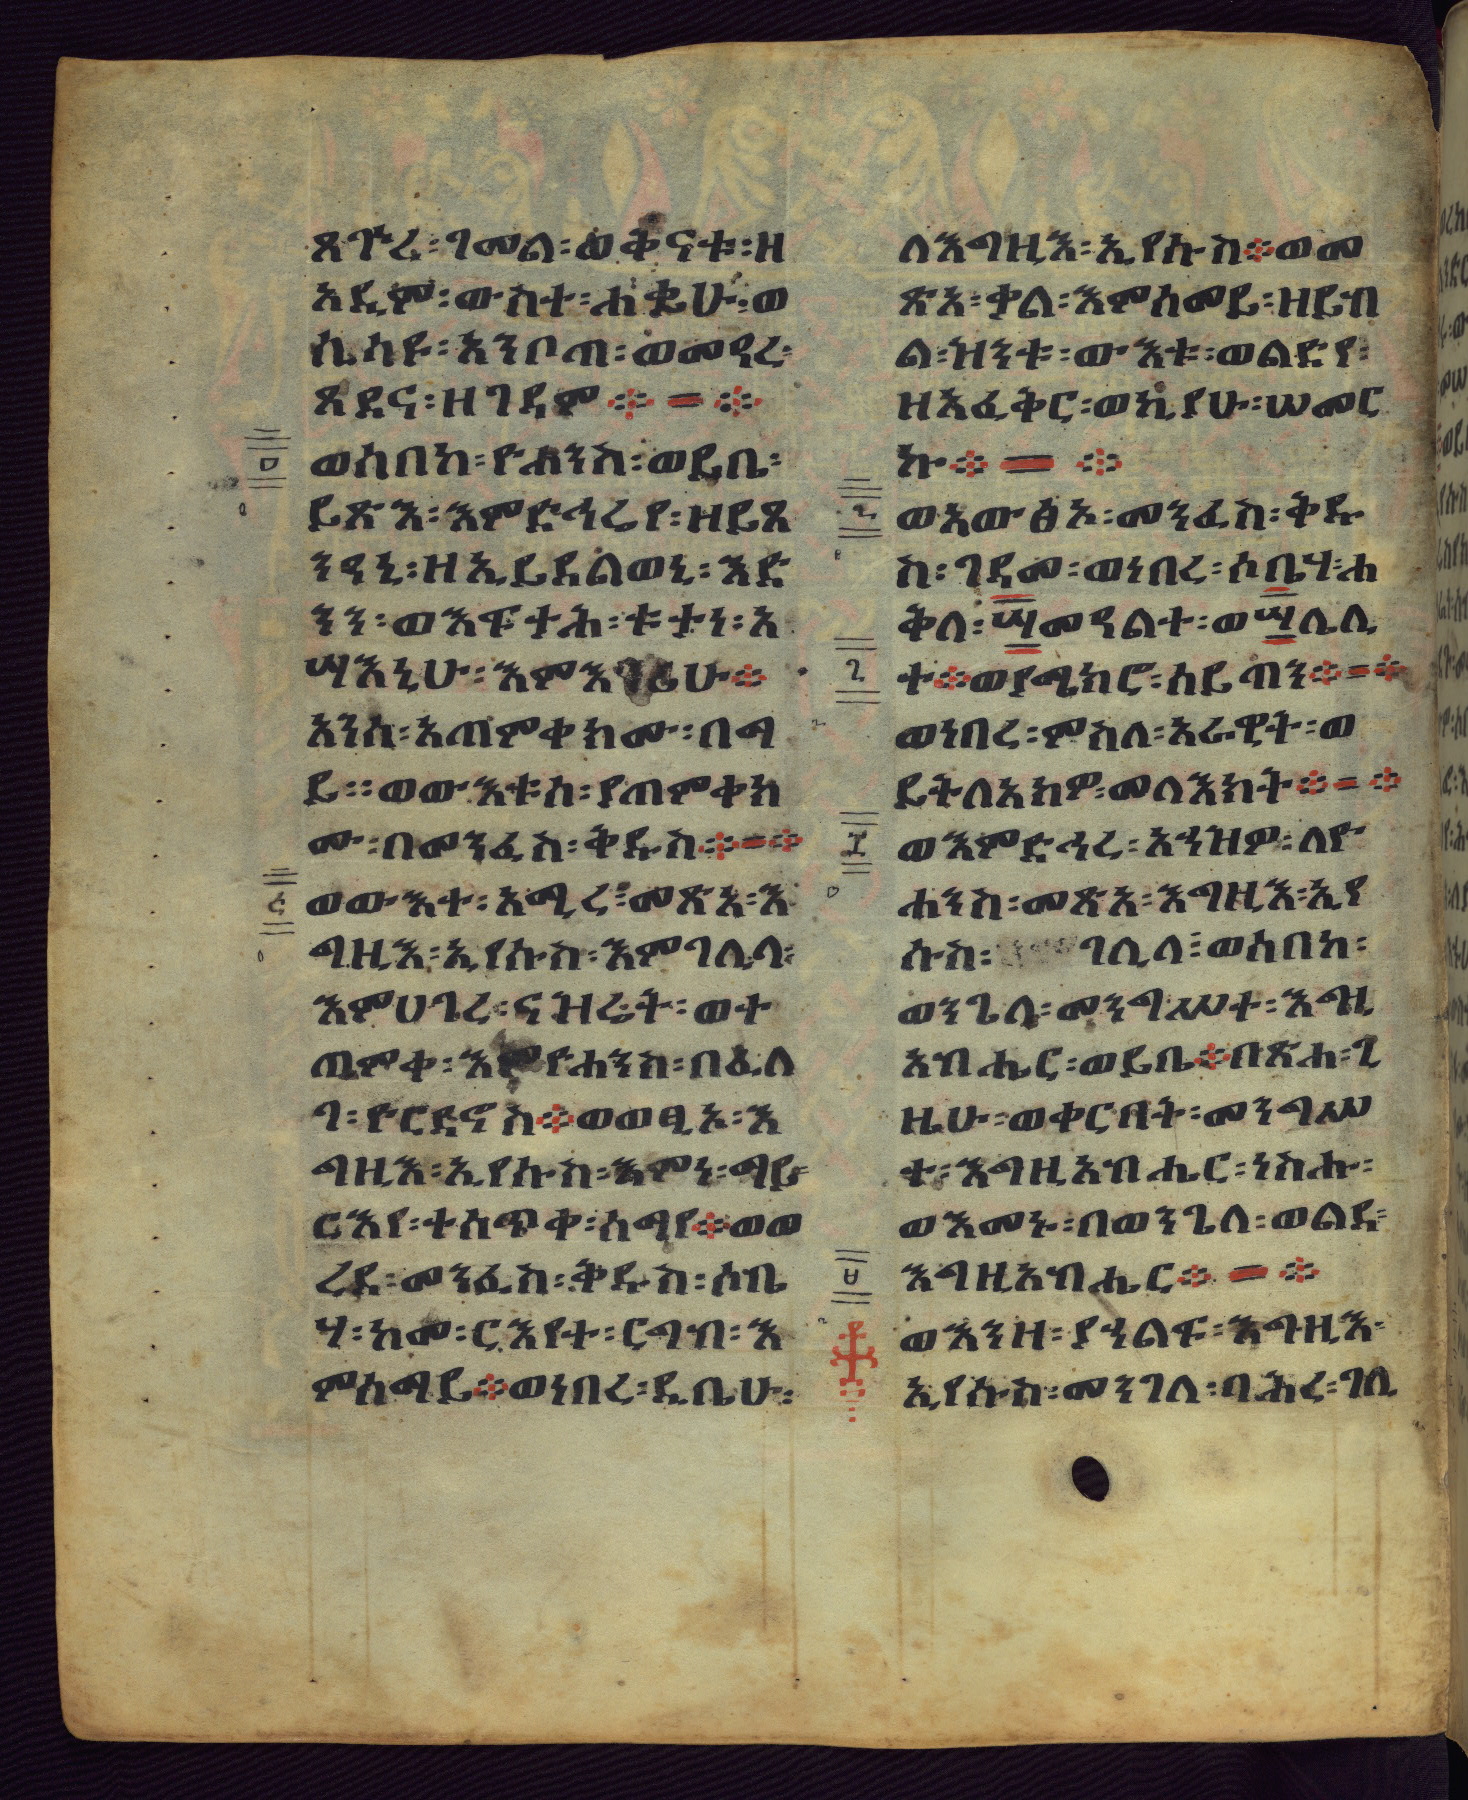 ጸጕረ፡ገመል፡ወቅናቱ፡ዘ
አዲም፡ውስተ፡ሐቌሁ፡ወ
ሲሳዩ፡አንበጣ፡ወመዓረ፡
ጸደና፡ዘገዳም፨
ወሰበከ፡ዮሐንስ፡ወይቤ፡
ይጽእ፡እምድኅሬየ፡ዘይጸ
ንዓኒ፡ዘኢይደልወኒ፡እድ
ንን፡ወእፍታሕ፡ቶታነ፡አ
ሣእኒሁ፡እምእገሪሁ፨
አንሰ፡አጠምቀክሙ፡በማ
ይ፡፡ወውእቱሰ፡ያጠምቀክ
ሙ፡በመንፈስ፡ቅዱስ፨
ወውእተ፡አሚረ፡መጽአ፡እ
ግዚእ፡ኢየሱስ፡እምገሊላ፡
እምሀገረ፡ናዝሬት፡ወተ
ጠምቀ፡እምዮሐንስ፡በፈለ
ገ፡ዮርዳኖስ፨ወወፂኦ፡እ
ግዚእ፡ኢየሱስ፡እምነ፡ማይ፡
ርእየ፡ተሰጥቀ፡ሰማየ፨ወወ
ረደ፡መንፈስ፡ቅዱስ፡ሶቤ
ሃ፡ከመ፡ርእየተ፡ርግብ፡እ
ምሰማይ፨ወነበረ፡ዲቤሁ፡
ለእግዚእ፡ኢየሱስ፨ወመ
ጽአ፡ቃል፡እምሰመይ፡ዘይብ
ል፡ዝንቱ፡ውእቱ፡ወልድየ፡
ዘአፈቅር፡ወኪያሁ፡ሠመር
ኩ፨
ወአውፅኦ፡መንፈስ፡ቅዱ
ስ፡ገዳመ፡ወነበረ፡ሶቤሃ፡ሐ
ቅለ፡፵መዓልተ፡ወ፵ሌሊ
ተ፨ወያሜክሮ፡ሰይጣን፨
ወነበረ፡ምስለ፡አራዊት፡ወ
ይትለአክዎ፡መላእክት፨
ወእምድኅረ፡አኀዝዎ፡ለዮ
ሐንስ፡መጽአ፡እግዚእ፡ኢየ
ሱስ፡ገሊላ፡ወሰበከ፡
ወንጌለ፡መንግሥተ፡እግዚ
አብሔር፡ወይቤ፨በጽሐ፡ጊ
ዜሁ፡ወቀርበት፡መንግሥ
ተ፡እግዚአብሔር፡ነስሑ፡
ወእመኑ፡በወንጌለ፡ወልደ፡
እግዚአብሔር፨
ወእንዘ፡ያኀልፍ፡እግዚእ፡
ኢየሱስ፡መንገለ፡ባሕረ፡ገሊ